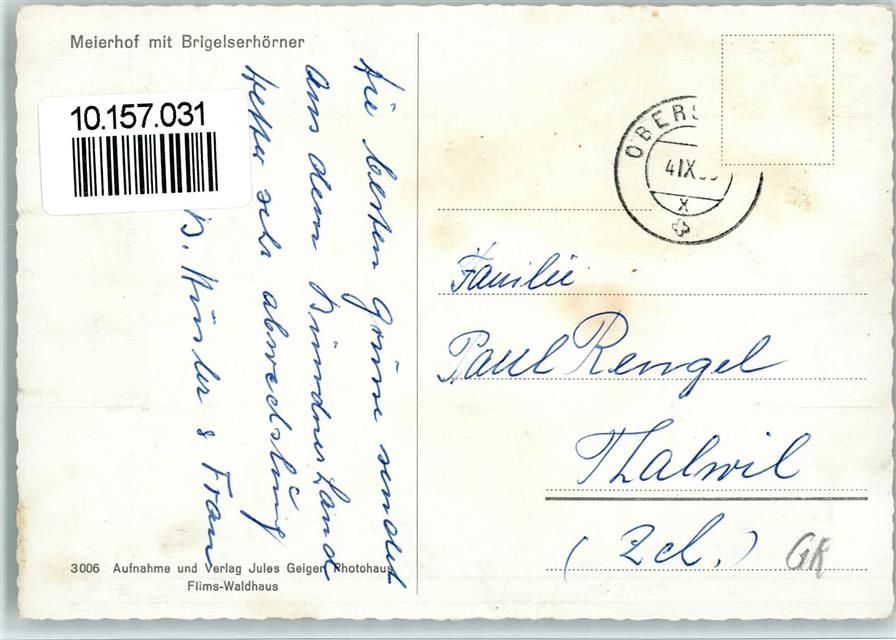 Meierhof mit Brigelserhörner
10.157.031
Die besten Grüsse sendet
aus dem Bündner Land
Wetter sehr abwechslung
B. & Frau
OBERS
4 IX
X
Familie
Paul Rengel
Thalwil
(Zch.)
GR
3006 Aufnahme und Verlag Jules Geiger Photohaus
Flims-Waldhaus